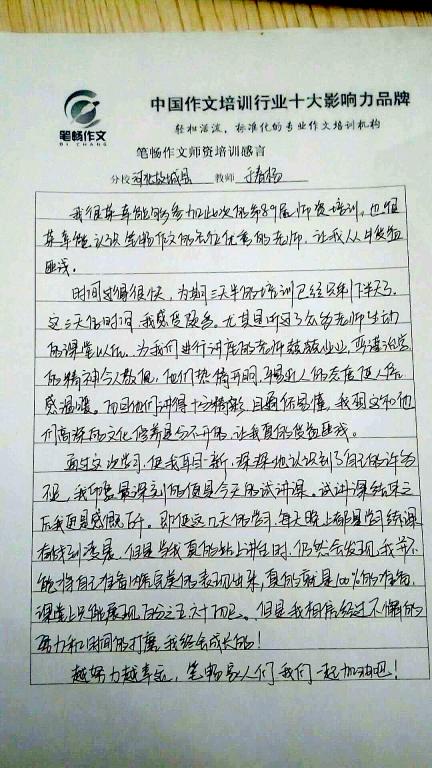 中国作文培训行业十大影响力品牌
轻松活泼、标准化的专业作文培训机构
笔畅作文
BI CHANG
笔畅作文师资培训感言
分校 河北故城县 教师 于春杨
我很荣幸能够参加此次的第89届师资培训。也很
荣幸能认识笔畅作文的各位优秀的老师，让我从中受益
匪浅。
时间过得很快，为期三天半的培训已经只剩下半天了，
这三天的时间，我感受颇多。尤其是听了众多老师生动
的课堂以后，为我们进行讲座的老师兢兢业业，严谨治学
的精神令人敬佩，他们热情开朗，平易近人的态度使人倍
感温暖。而且他们讲得十分精彩，且通俗易懂，我想这和他
们高深的文化修养是分不开的，让我真的受益匪浅。
通过这次学习，使我耳目一新，深深地认识到了自己的许多
不足，我印象最深刻的便是今天的试讲课。试讲课结束之
后我更是感慨万千。即使这几天的学习，每天晚上都是学习练课
到凌晨，但是当我真的站上讲台时，仍然会发现，我并不
能将自己准备的内容完美的表现出来，真的就是100%的准备，
课堂上只能展现百分之五六十而已。但是我相信经过不懈的
努力和时间的打磨，我终会成长的！
越努力越幸运，笔畅家人们我们一起加油吧！